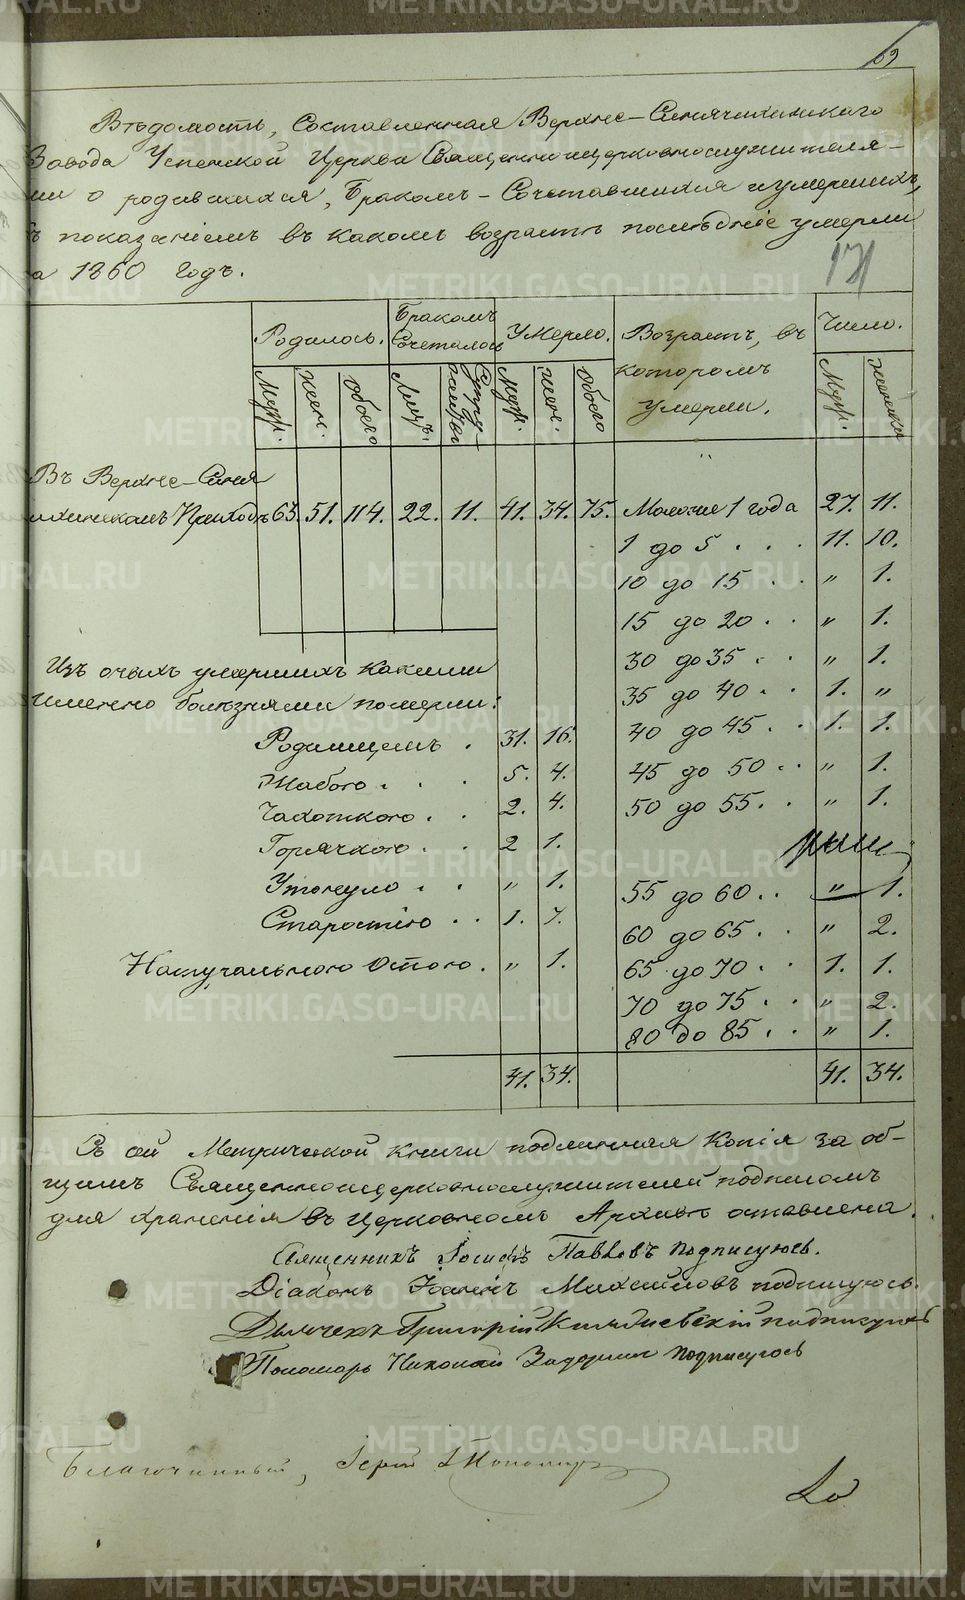 69
Вѣдомость, Составленная Верхне-Синячихинскаго
Завода Успенской Церкви Священноцерковнослужителя-
ми о родившихся, Бракомъ-Сочетавшихся и умершихъ,
съ показаніемъ въ какомъ возрастѣ послѣдніе умерли
за 1860 годъ.
171
Родилось. Бракомъ Сочеталось Умерло. Возрастъ, въ которомъ умерли. Число.
Муж. Жен. Обоего Лицъ. Супружествъ Муж. Жен. Обоего Муж. Женска
Въ Верхне-Синя
чихинскомъ Приходѣ 63. 51. 114. 22. 11. 41. 34. 75. Моложе 1 года 27. 11.
1 до 5 . . . 11. 10.
10 до 15 . . " 1.
15 до 20 . . " 1.
30 до 35 . . " 1.
35 до 40 . . 1. "
40 до 45 . . 1. 1.
45 до 50 . . " 1.
50 до 55 . . " 1.
55 до 60 . . " 1.
60 до 65 . . " 2.
65 до 70 . . 1. 1.
70 до 75 . . " 2.
80 до 85 . . " 1.
41. 34.
Изъ оныхъ умершихъ какими
именно болѣзнями померли:
Родимцемъ . 31. 16.
Жабою . . . 5. 4.
Чахоткою . . 2. 4.
Горячкою . . 2 1.
Утонуло . . " 1.
Старостію . . 1. 7.
Натуральною Оспою . " 1.
41. 34.
Съ сей Метрической книги подлинная Копія за об-
щимъ Священноцерковнослужителей подписомъ
для храненія въ Церковномъ Архивѣ оставлена.
Священникъ Іосифъ Павловъ подписуюсь.
Діаконъ Іоаннъ Михайловъ подпишуюсь.
Дьячекъ Григорій подписуюсь
Пономарь Николай Задоринъ подписуюсь
Благочинный, Іерей
METRIKI.GASO-URAL.RU